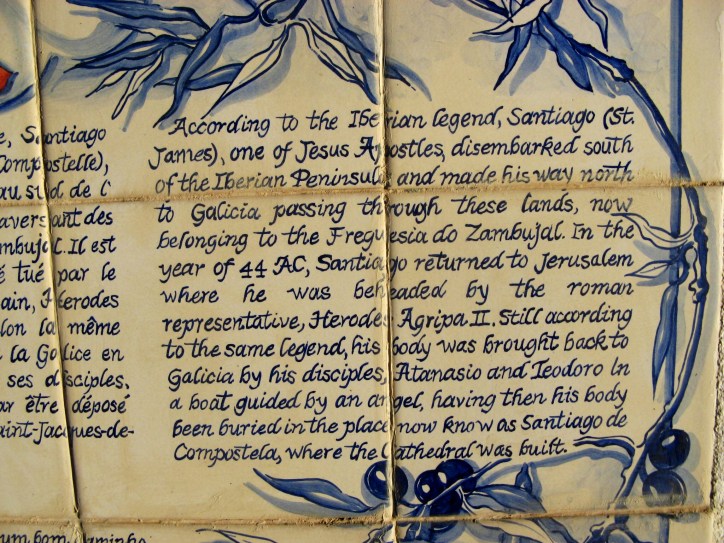 e, Santiago
Compostelle),
au sud de l'
aversant des
mbujal. Il est
é tué par le
ain, Herodes
lon la même
la Galice en
ses disciples,
ar être déposé
aint-Jacques-de-
According to the Iberian legend, Santiago (St.
James), one of Jesus Apostles, disembarked south
of the Iberian Peninsula and made his way north
to Galicia passing through these lands, now
belonging to the Freguesia do Zambujal. In the
year of 44 AC, Santiago returned to Jerusalem
where he was beheaded by the roman
representative, Herodes Agripa II. Still according
to the same legend, his body was brought back to
Galicia by his disciples, Atanasio and Teodoro in
a boat guided by an angel, having then his body
been buried in the place now know as Santiago de
Compostela, where the Cathedral was built.
um bom caminho